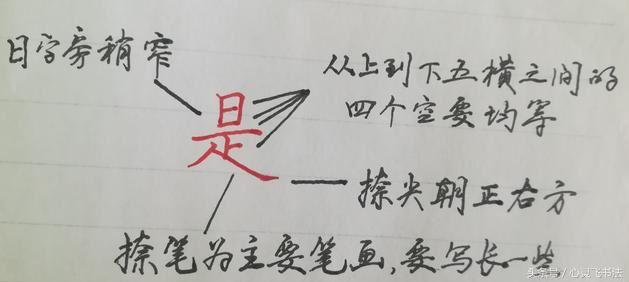 日字旁稍窄
从上到下五横之间的
四个空要均等
是
捺尖朝正右方
捺笔为主要笔画,要写长一些
头条号/心灵飞书法